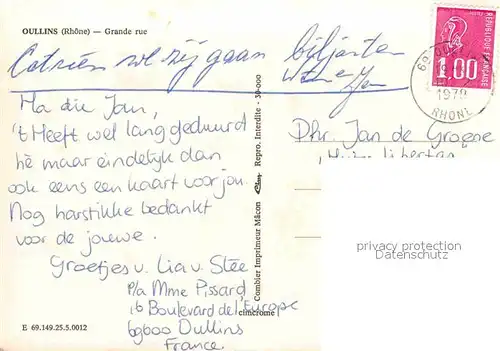 OULLINS (Rhône) — Grande rue
gaan biljarten
Ha die Jan,
't Heeft wel lang geduurd
hè maar eindelijk dan
ook eens een kaart voor jou.
Nog harstikke bedankt
voor de jouwe.
Groetjes v. Lia v. Stee
p/a Mme Pissard,
16 Boulevard de l'Europe
69600 Oullins
France.
E 69.149.25.5.0012
Combier Imprimeur Mâcon
Repro. Interdite - 30-000
cimcrome
REPUBLIQUE FRANÇAISE
1.00
1978
RHONE
Dhr. Jan de Groene
privacy protection
Datenschutz